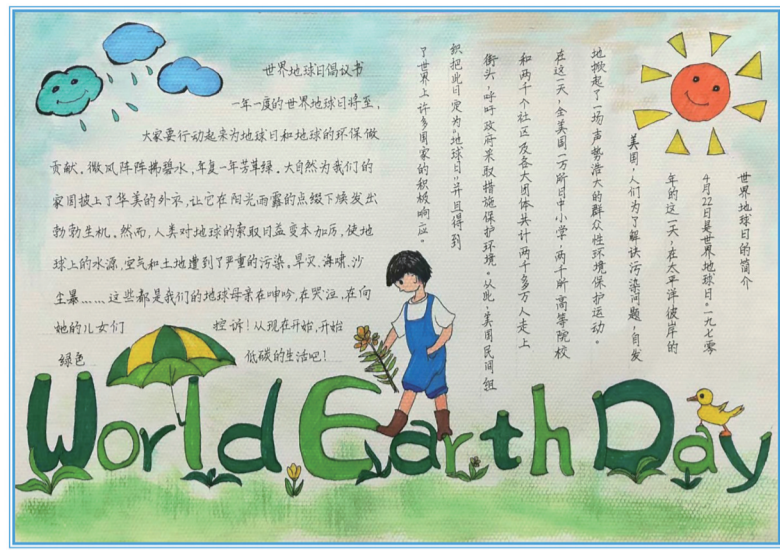 世界地球日倡议书
一年一度的世界地球日将至,
大家要行动起来为地球日和地球的环保做
贡献。微风阵阵拂碧水,年复一年芳草绿。大自然为我们的
家园披上了华美的外衣,让它在阳光雨露的点缀下焕发出
勃勃生机。然而,人类对地球的索取日益变本加厉,使地
球上的水源,空气和土地遭到了严重的污染。旱灾、海啸、沙
尘暴……这些都是我们的地球母亲在呻吟,在哭泣,在向
她的儿女们 控诉!从现在开始,开始
绿色 低碳的生活吧!
世界地球日的简介
4月22日是世界地球日。一九七零
年的这一天,在太平洋彼岸的
美国,人们为了解决污染问题,自发
地掀起了一场声势浩大的群众性环境保护运动。
在这一天,全美国一万所中小学,两千所高等院校
和两千个社区及各大团体共计两千多万人走上
街头,呼吁政府采取措施保护环境。从此,美国民间组
织把此日定为"地球日"并且得到
了世界上许多国家的积极响应。
World Earth Day